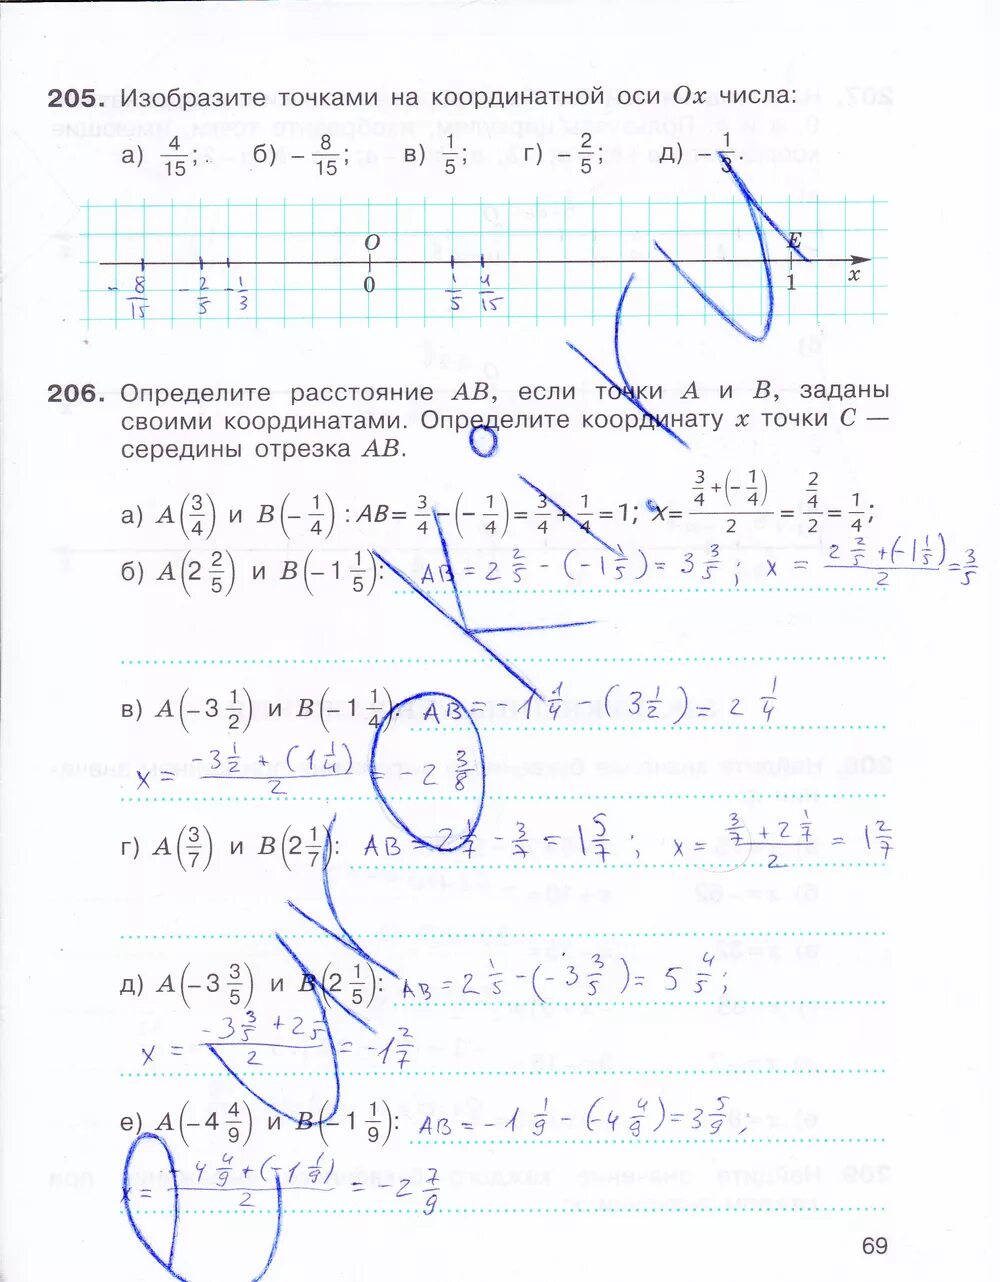 205. Изобразите точками на координатной оси Ox числа:
а) 4/15; б) − 8/15; в) 1/5; г) − 2/5; д) −
O E
0 1 x
− 8/15 − 2/5 − 1/3 1/5 4/15
206. Определите расстояние AB, если точки A и B, заданы
своими координатами. Определите координату x точки C —
середины отрезка AB.
а) A(3/4) и B(− 1/4) : AB = 3/4 − (− 1/4) = 3/4 + 1/4 = 1; x = (3/4 + (− 1/4))/2 = (2/4)/2 = 1/4;
б) A(2 2/5) и B(−1 1/5): AB = 2 2/5 − (−1 1/5) = 3 3/5; x = (2 2/5 + (−1 1/5))/2 = 3/5
в) A(−3 1/2) и B(−1 1/4): AB = 1 1/4 − (3 1/2) = 2 1/4
x = (−3 1/2 + (1 1/4))/2 2 3/8
г) A(3/7) и B(2 1/7): AB = 2 1/7 − 3/7 = 1 5/7; x = (3/7 + 2 1/7)/2 = 1 2/7
д) A(−3 3/5) и B(2 1/5): AB = 2 1/5 − (−3 3/5) = 5 4/5;
x = (−3 3/5 + 2 1/5)/2 = −1 2/7
е) A(−4 4/9) и B(−1 1/9): AB = −1 1/9 − (−4 4/9) = 3 5/9;
x = (−4 4/9 + (−1 1/9))/2 = −2 7/9
69